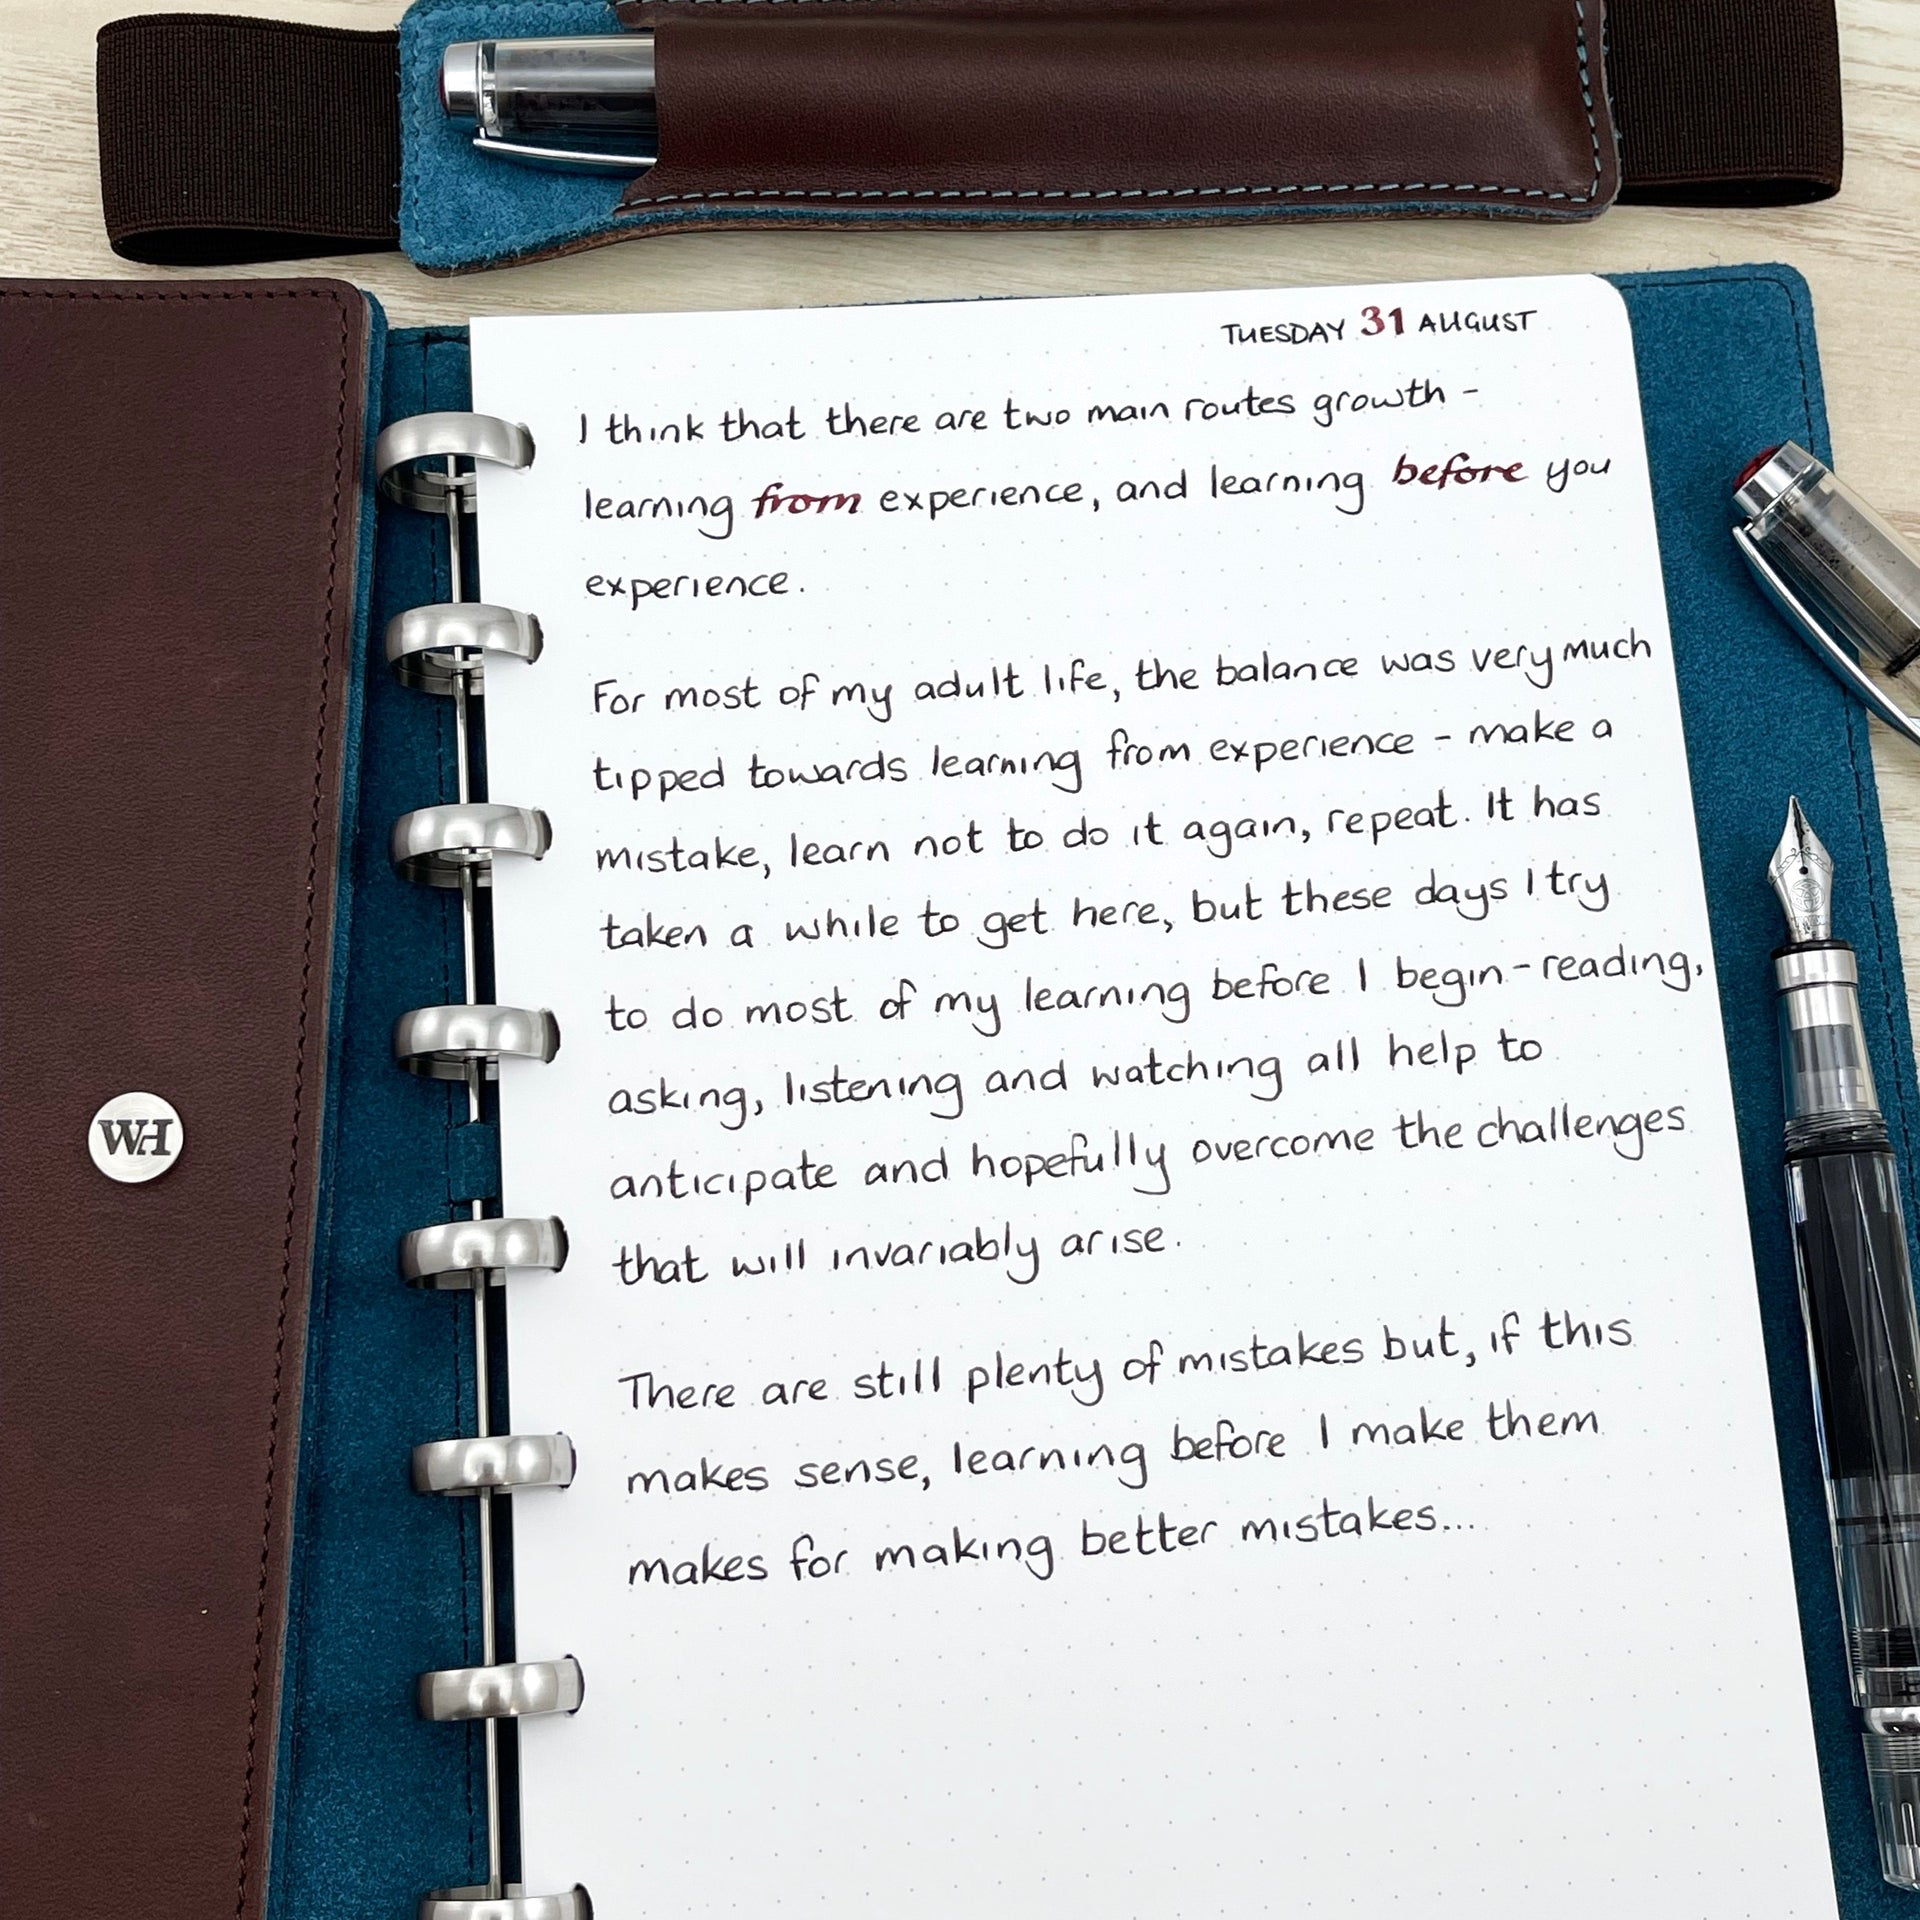 TUESDAY 31 AUGUST
I think that there are two main routes growth -
learning from experience, and learning before you
experience.
For most of my adult life, the balance was very much
tipped towards learning from experience - make a
mistake, learn not to do it again, repeat. It has
taken a while to get here, but these days I try
to do most of my learning before I begin - reading,
asking, listening and watching all help to
anticipate and hopefully overcome the challenges
that will invariably arise.
There are still plenty of mistakes but, if this
makes sense, learning before I make them
makes for making better mistakes...
WH